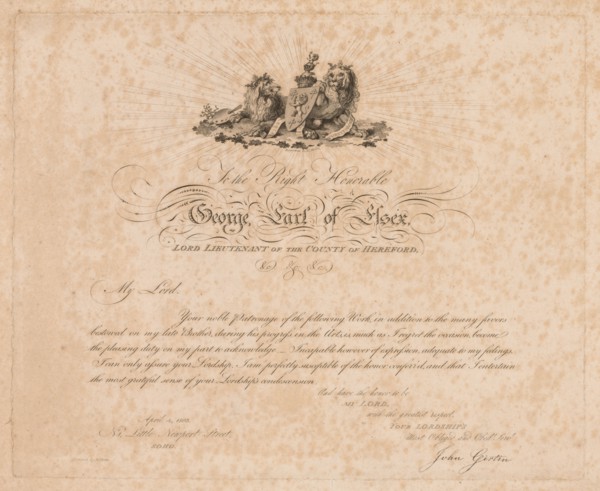 To the Right Honorable
George, Earl of Essex,
LORD LIEUTENANT OF THE COUNTY OF HEREFORD,
&c. &c. &c.
My Lord
Your noble Patronage of the following Work, in addition to the many favors
bestowed on my late Brother, during his progress in the Art, as much as I regret the occasion, become
the pleasing duty on my part to acknowledge. Incapable however of expression, adequate to my feelings,
I can only assure your Lordship, I am perfectly susceptible of the honor conferred, and that I entertain
the most grateful sense of your Lordships condescension.
And have the honor to be
MY LORD,
with the greatest respect,
YOUR LORDSHIPS
Most
April
Little Newport Street,
SOHO.
John